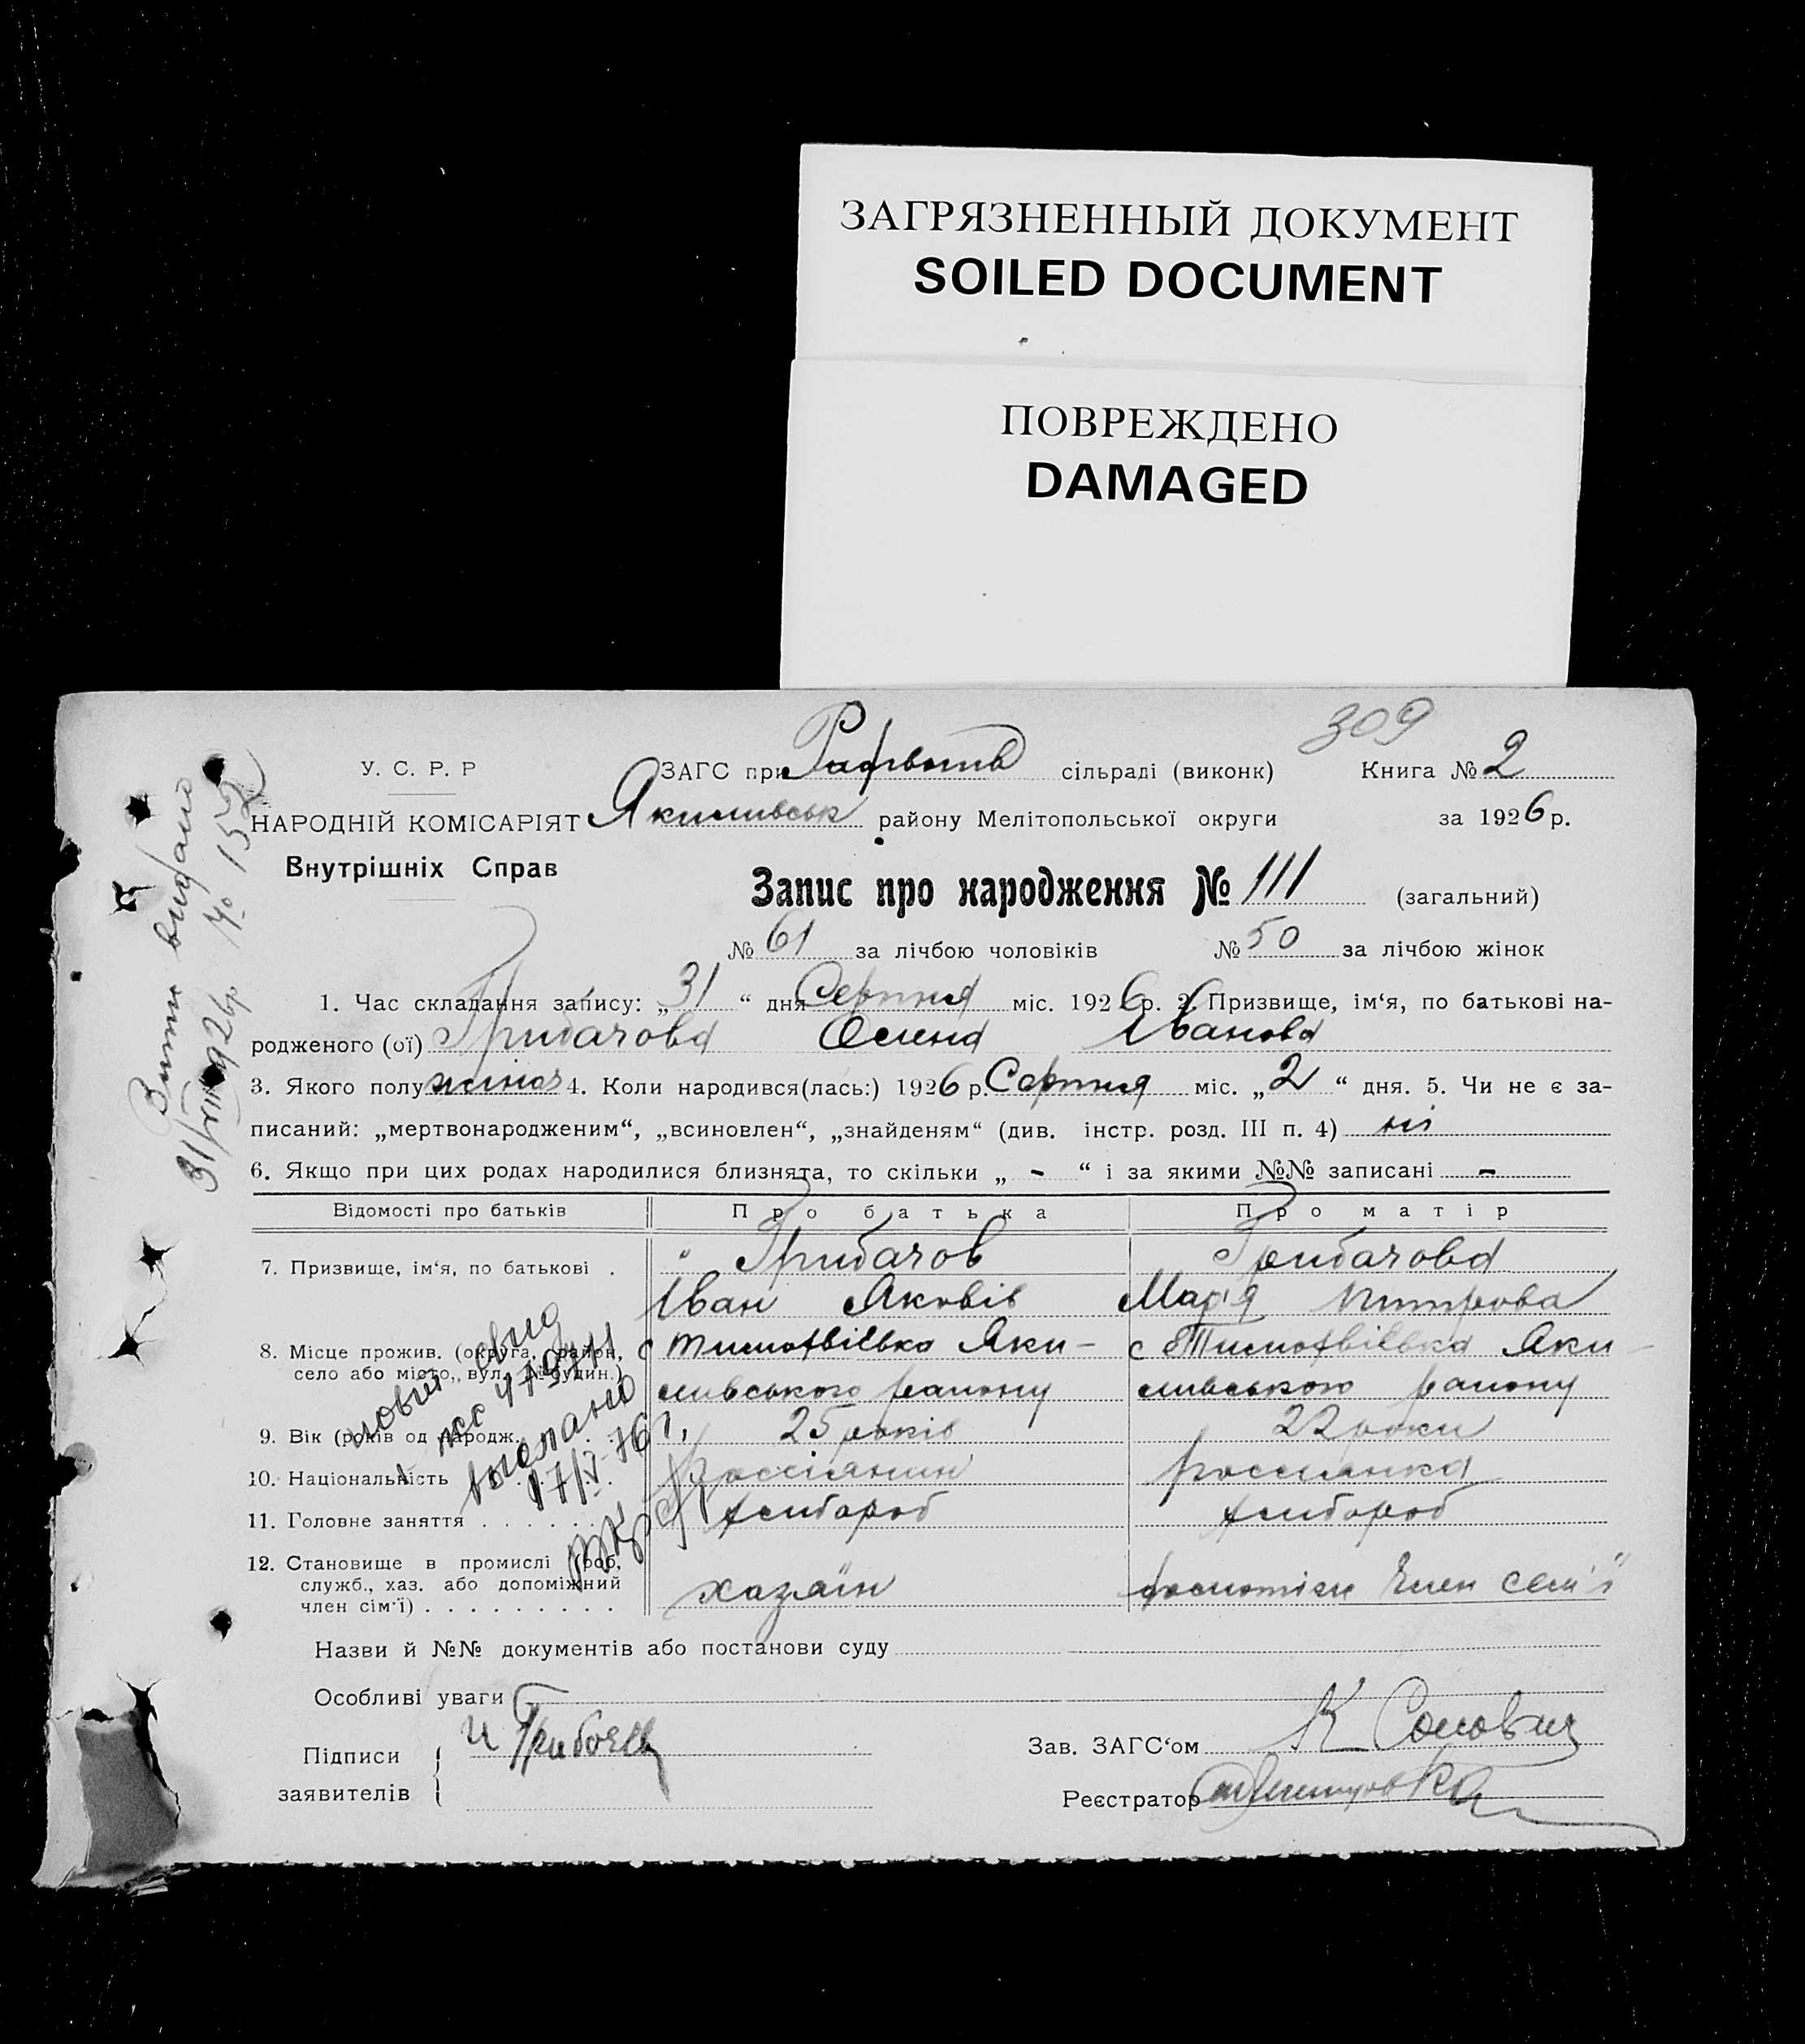 ЗАГРЯЗНЕННЫЙ ДОКУМЕНТ
SOILED DOCUMENT
ПОВРЕЖДЕНО
DAMAGED
309
У. С. Р. Р
ЗАГС при сільраді (виконк) Книга № 2
НАРОДНІЙ КОМІСАРІЯТ Якимивськ району Мелітопольської округи за 1926 р.
Внутрішніх Справ
Запис про народження № 111 (загальний)
№ 61 за лічбою чоловіків № 50 за лічбою жінок
1. Час складання запису: „ 31 “ дня Серпня міс. 1926 р. 2. Призвище, ім‘я, по батькові на-
родженого (ої) Грибачова Олена Іванова
3. Якого полу жіноч 4. Коли народився(лась:) 1926 р. Серпня міс. „ 2 “ дня. 5. Чи не є за-
писаний: „мертвонародженим“, „всиновлен“, „знайденям“ (див. інстр. розд. III п. 4) ні
6. Якщо при цих родах народилися близнята, то скільки „ - “ і за якими №№ записані -
Відомості про батьків Про батька Про матір
7. Призвище, ім‘я, по батькові . Грибачов Грибачова
Іван Яковів Мар'я
8. Місце прожив. (округа, район, с Тимофвієвка Яки- с Тимофвієвка Яки-
село або місто, вул. № будин.) мивського району мивського району
9. Вік (років од народж. 25 років 22 роки
10. Національність россіянин россиянка
11. Головне заняття . . . . . . хлібороб хлібороб
12. Становище в промислі (роб,
служб., хаз. або допоміжний хазяїн член сем'ї
член сім‘ї) . . . . . . . . .
Назви й №№ документів або постанови суду
Особливі уваги
Підписи И Грибочев Зав. ЗАГС‘ом К
заявителів Реєстратор
Витяг видано
31/VIII 1926р. № 152
выслано
17/V-76 г.